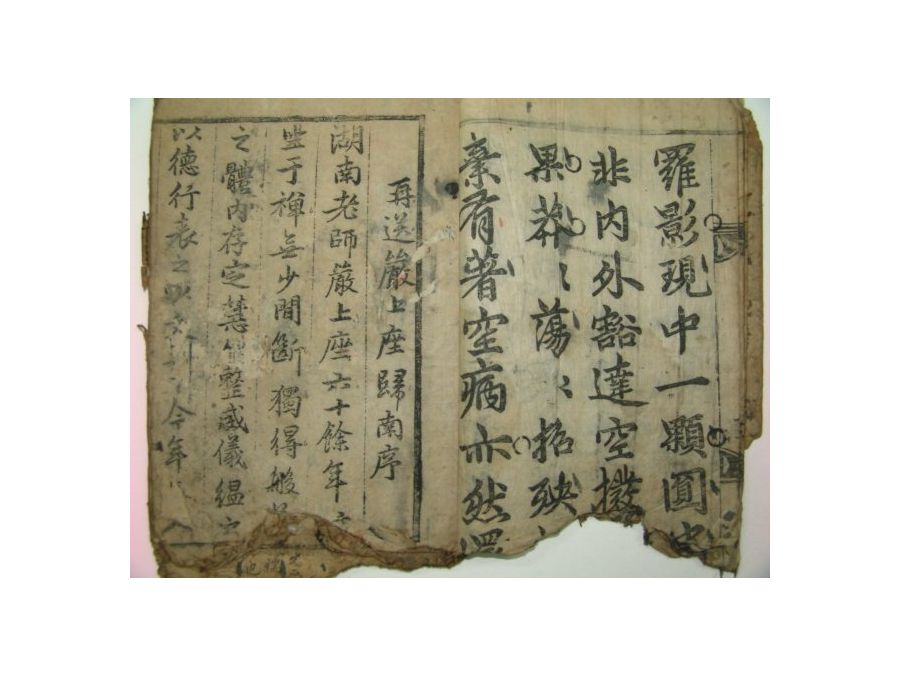 羅影現中一顆圓光
非內外豁達空撥
果莽〻蕩〻招殃
棄有著空病亦然還
再送嚴上座歸南序
湖南老師嚴上座六十餘年
坐于禪無少間斷獨得般
之體內存定慧外整威儀縕
以德行表之以文 今年